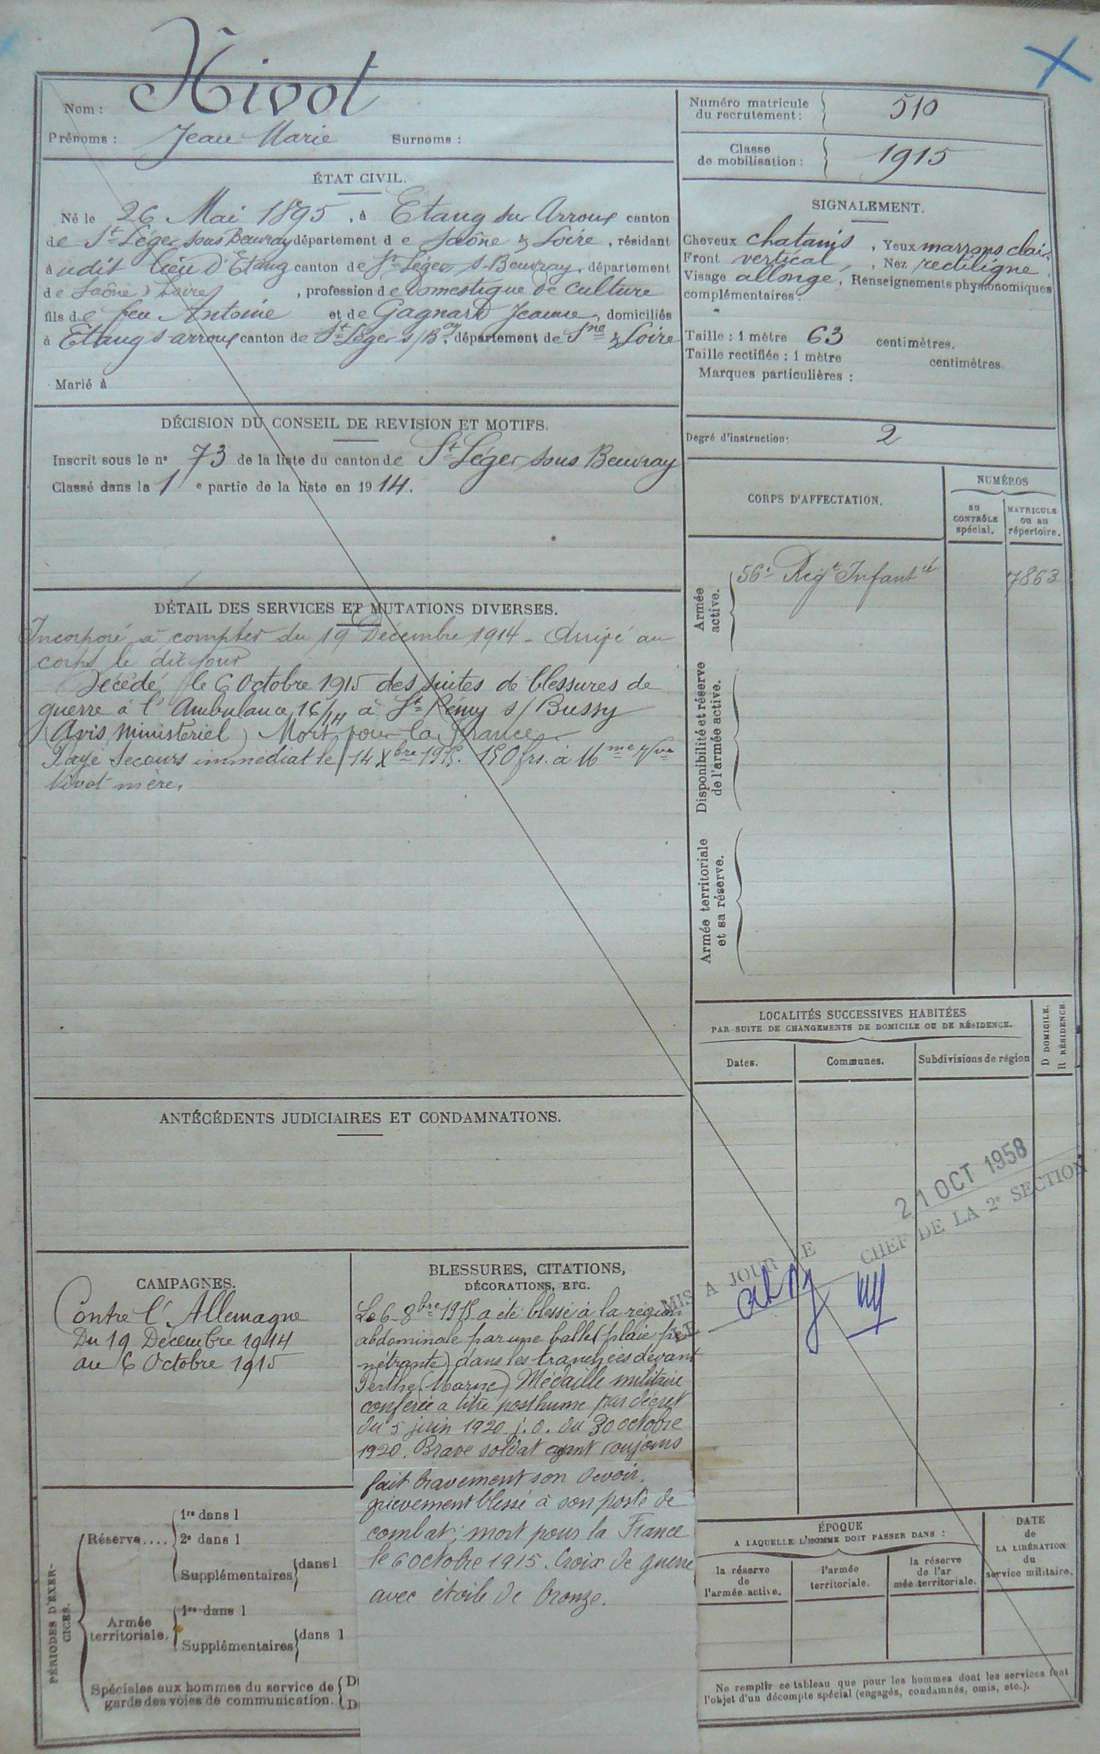 Nom : Nivot
Prénoms : Jean Marie Surnoms :
ÉTAT CIVIL.
Né le 26 Mai 1895, à Etang sur Arroux canton
de St Léger sous Beuvray département de Saône & Loire, résidant
à udit lieu d'Etang canton de St Léger s. Beuvray, département
de Saône & Loire, profession de Domestique de culture
fils de feu Antoine et de Gagnard Jeanne, domiciliés
à Etang s arroux canton de St Léger s/ Bay département de Sne & Loire
Marié à
DÉCISION DU CONSEIL DE REVISION ET MOTIFS.
Inscrit sous le no 73 de la liste du canton de St Léger sous Beuvray
Classé dans la 1e partie de la liste en 1914.
DÉTAIL DES SERVICES ET MUTATIONS DIVERSES.
Incorporé à compter du 19 Décembre 1914 - Arrivé au
corps le dit jour
Décédé le 6 Octobre 1915 des suites de blessures de
guerre à l'Ambulance 16/14 à St Rémy s/ Bussy
(Avis Ministériel) Mort pour la France
Payé Secours immédiat le 14 Xbre 1915. 150 frs. à Mme Vve
Nivot mère.
ANTÉCÉDENTS JUDICIAIRES ET CONDAMNATIONS.
CAMPAGNES.
Contre l'Allemagne
Du 19 Décembre 1914
au 6 Octobre 1915
BLESSURES, CITATIONS,
DÉCORATIONS, ETC.
Le 6 8bre 1915 a été blessé à la région
abdominale par une balle (plaie pé
nétrante) dans les tranchées devant
Perthe (Marne) Médaille militaire
conférée à titre posthume par décret
du 5 juin 1920 j.o. du 30 octobre
1920. Brave soldat ayant toujours
fait bravement son devoir.
grièvement blessé à son poste de
combat; mort pour la France
le 6 octobre 1915. Croix de guerre
avec étoile de bronze.
PÉRIODES D'EXER-
CICES.
Réserve.... 1re dans l
2e dans l
Supplémentaires dans l
Armée
territoriale. 1re dans l
Supplémentaires dans l
Spéciales aux hommes du service de D
garde des voies de communication. D
Numéro matricule
du recrutement : 510
Classe
de mobilisation : 1915
SIGNALEMENT.
Cheveux chatains, Yeux marrons clair
Front vertical, Nez rectiligne
Visage allongé, Renseignements physionomiques
complémentaires :
Taille : 1 mètre 63 centimètres.
Taille rectifiée : 1 mètre centimètres.
Marques particulières :
Degré d'instruction : 2
CORPS D'AFFECTATION.
NUMÉROS
au
CONTRÔLE
spécial.
MATRICULE
ou au
répertoire.
Armée
active.
56e Régt Infantie 7863
Disponibilité et réserve
de l'armée active.
Armée territoriale
et sa réserve.
LOCALITÉS SUCCESSIVES HABITÉES
PAR SUITE DE CHANGEMENTS DE DOMICILE OU DE RÉSIDENCE.
D DOMICILE.
R RÉSIDENCE
Dates. Communes. Subdivisions de région
21 OCT 1958
MIS A JOUR LE
CHEF DE LA 2e SECTION
ÉPOQUE
A LAQUELLE L'HOMME DOIT PASSER DANS :
la réserve
de
l'armée active.
l'armée
territoriale.
la réserve
de l'ar
mée territoriale.
DATE
de
LA LIBÉRATION
du
service militaire.
Ne remplir ce tableau que pour les hommes dont les services font
l'objet d'un décompte spécial (engagés, condamnés, omis, etc.).